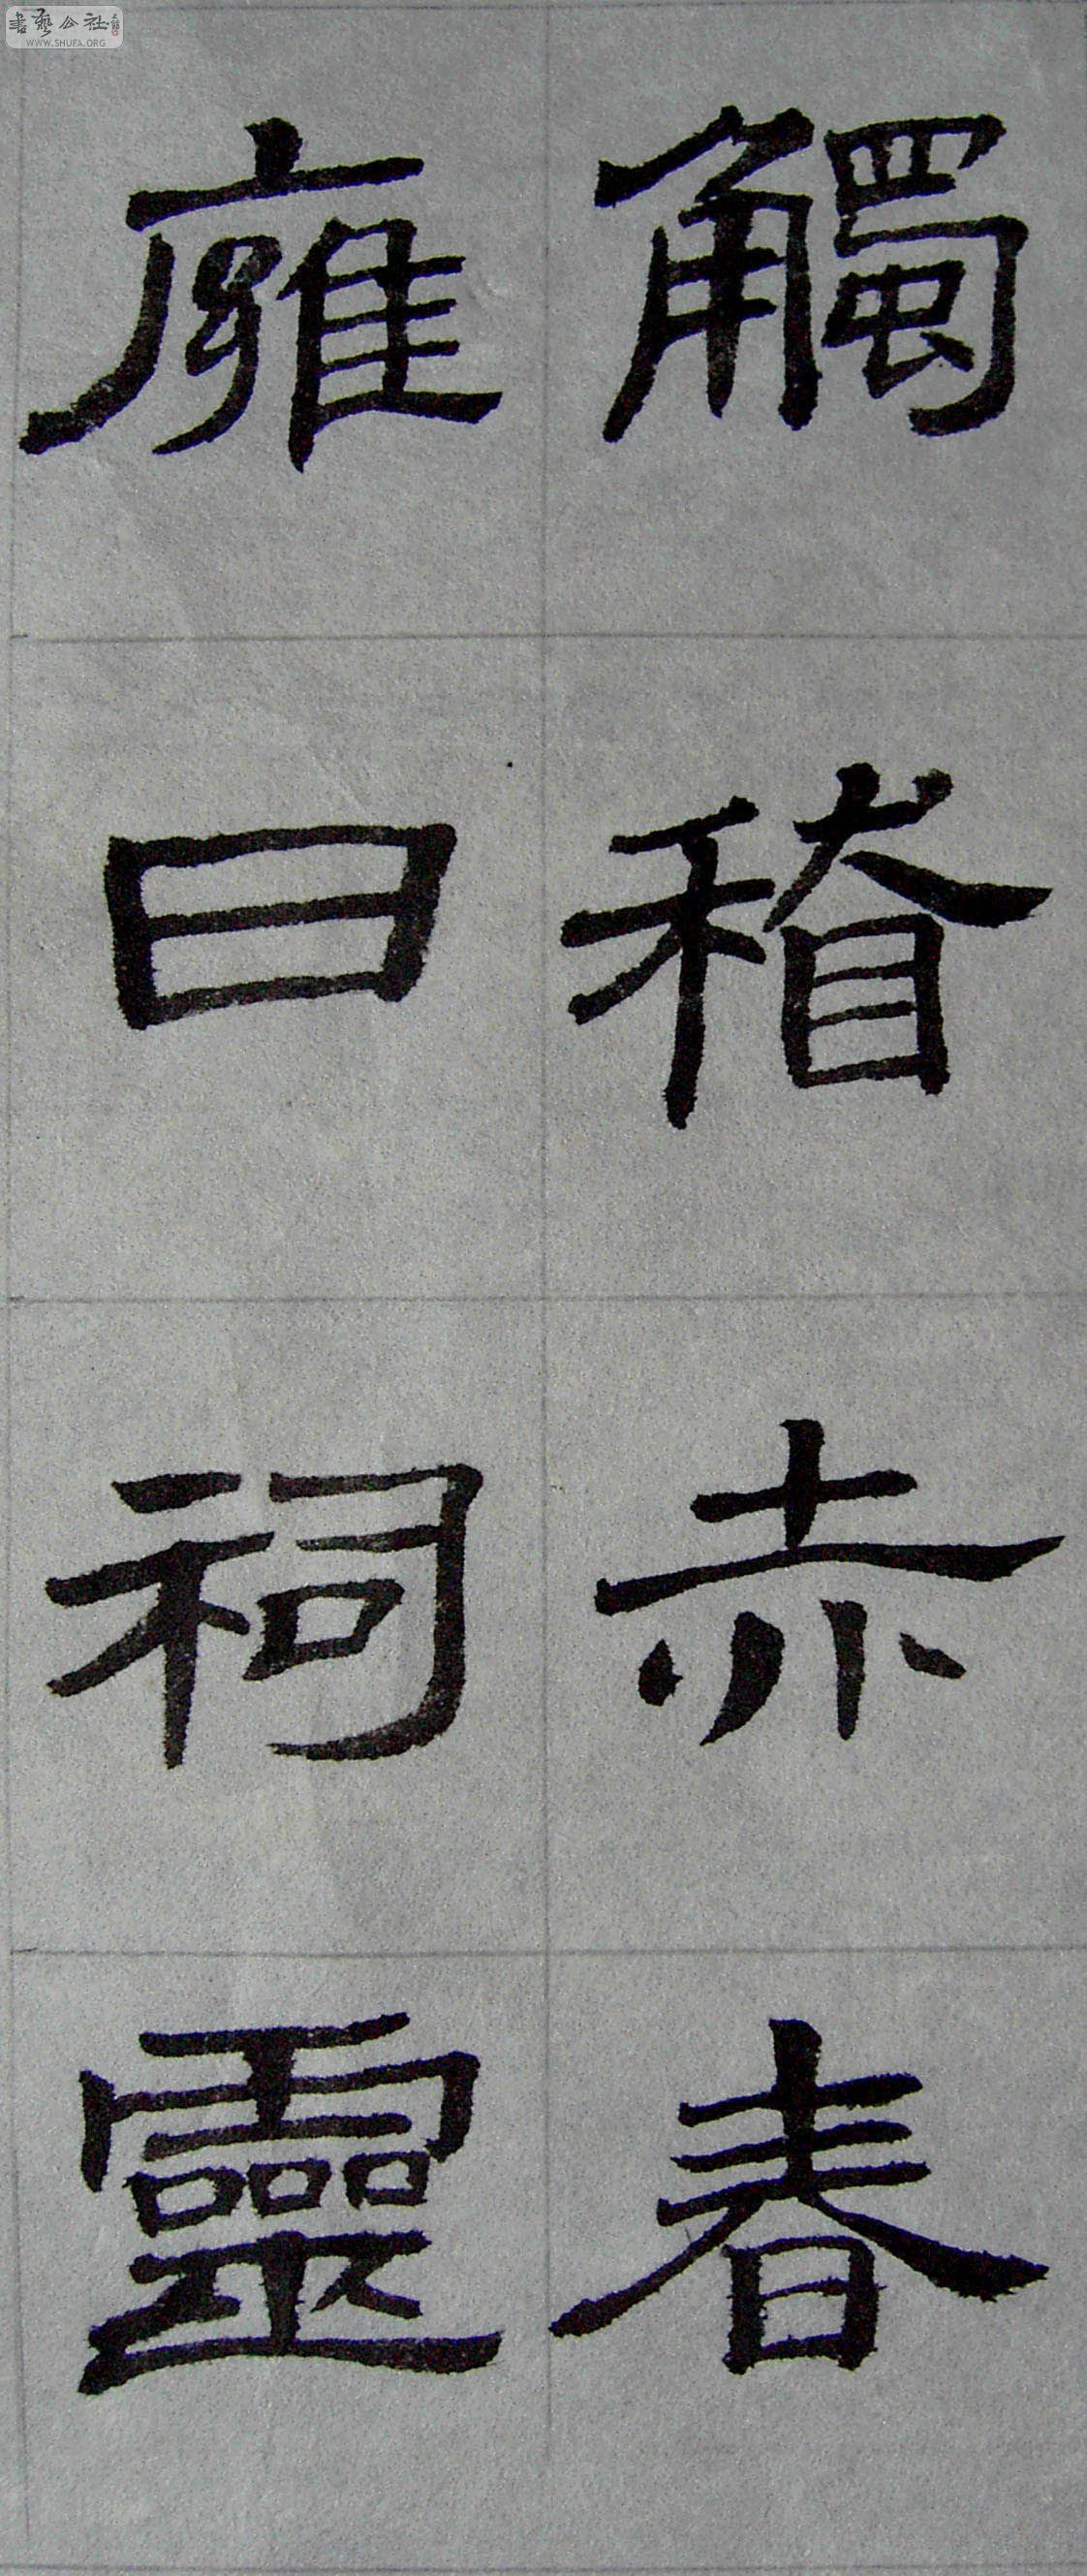 觸稽赤春
雍曰祠靈
書藝公社
WWW.SHUFA.ORG